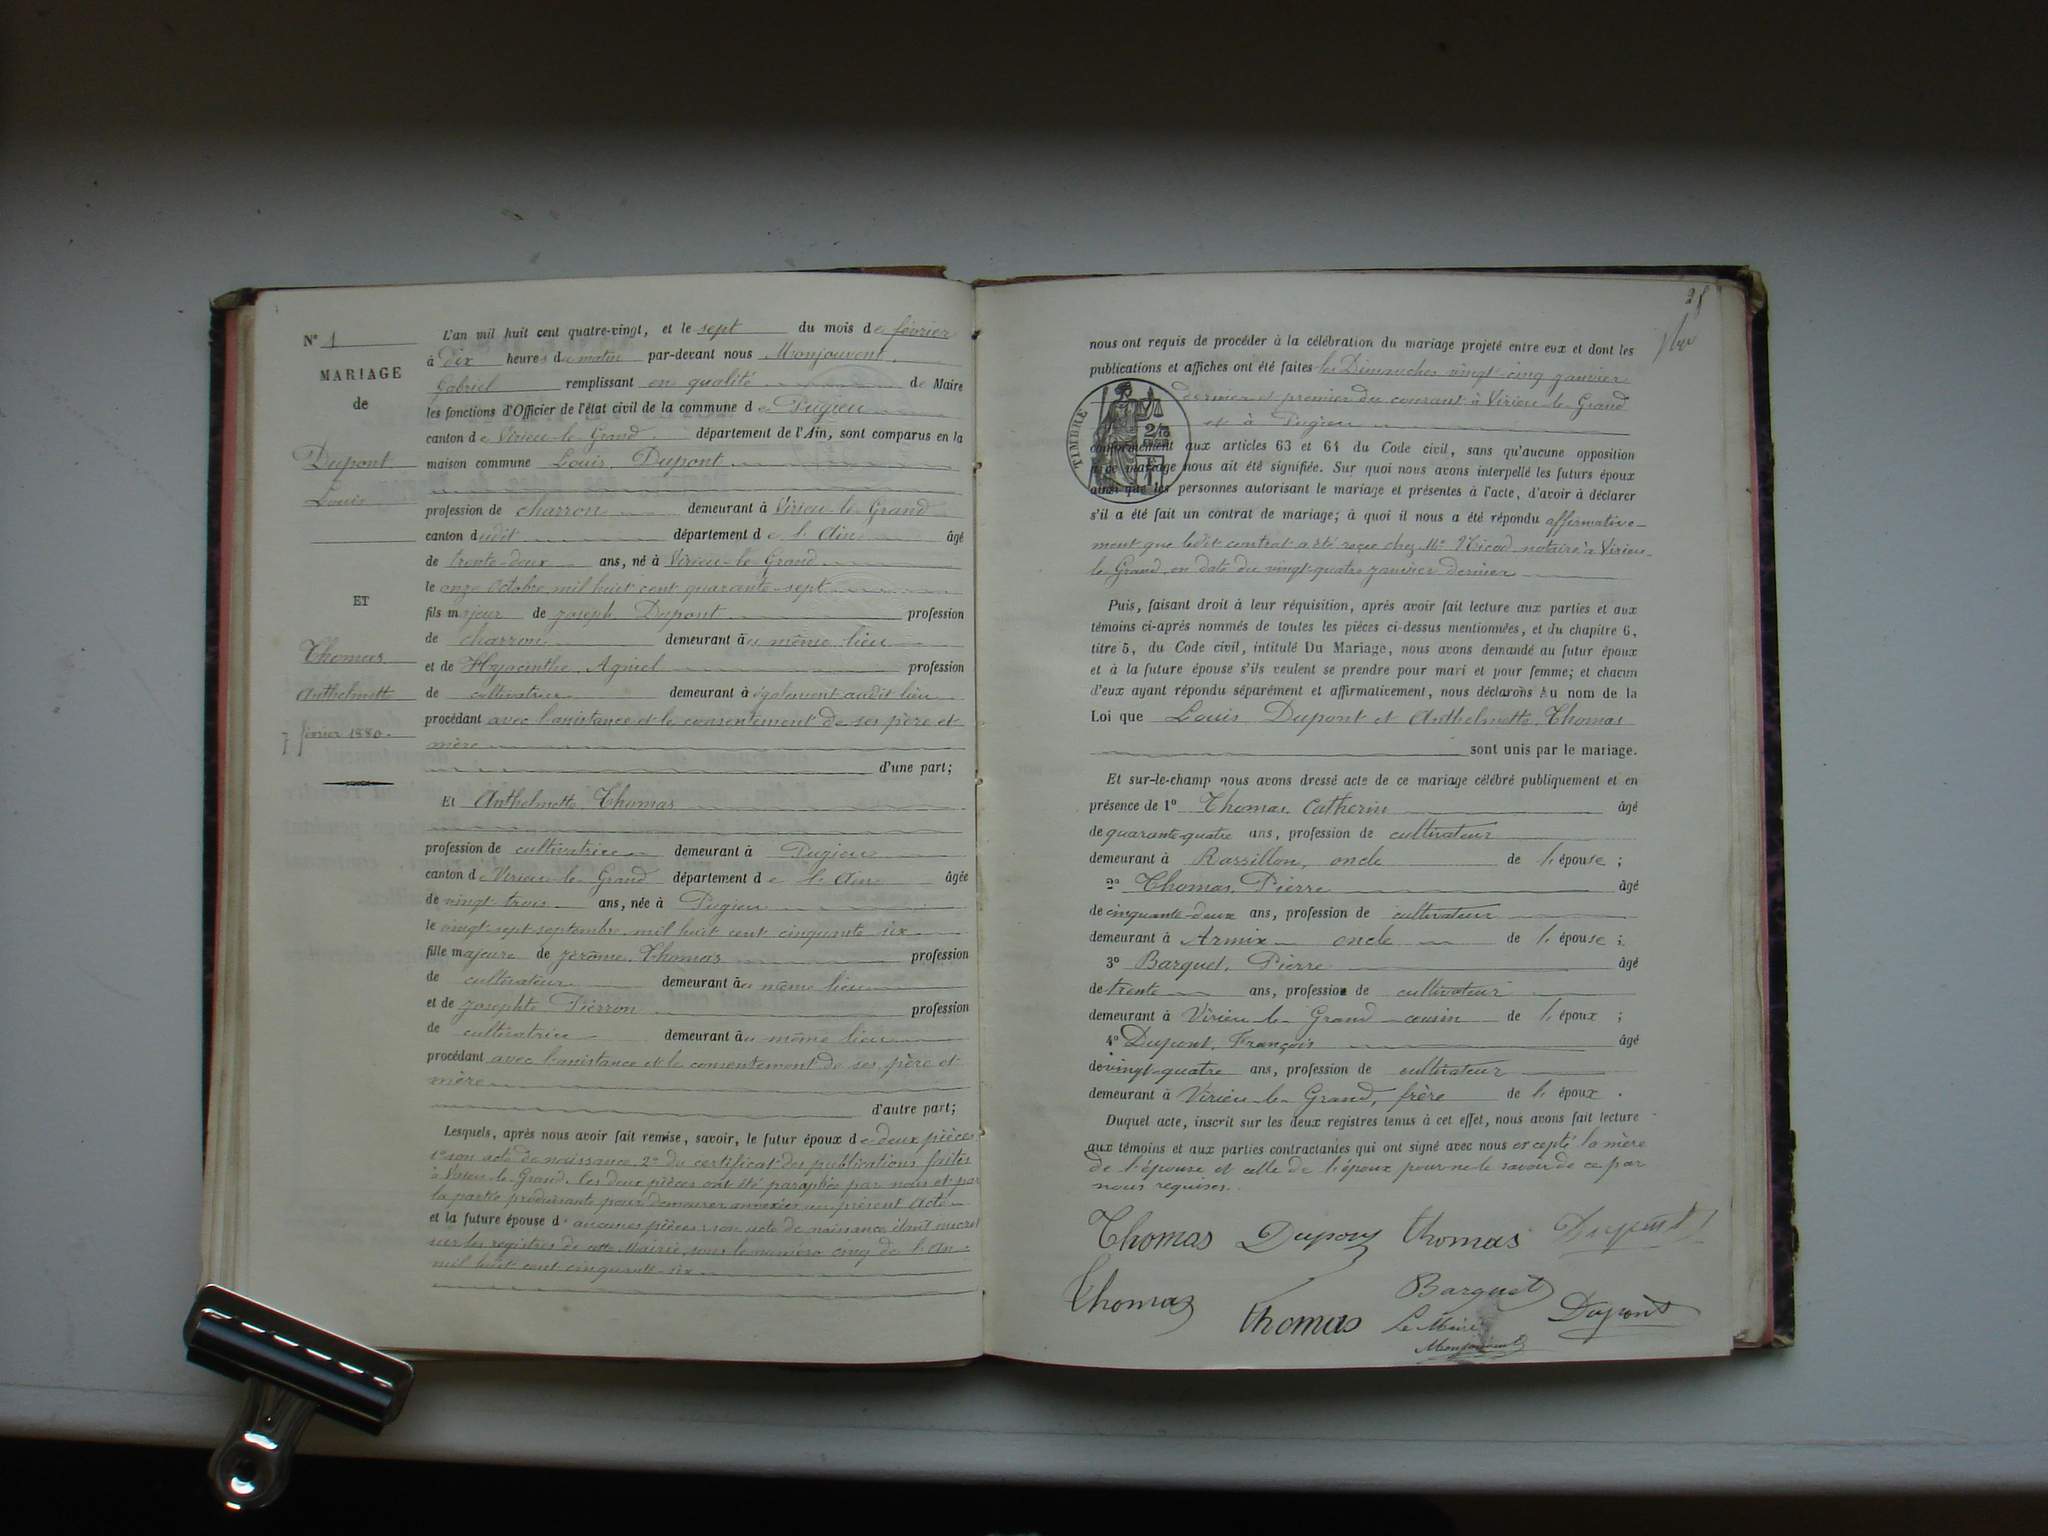 N° 1
MARIAGE
de
Dupont
Louis
ET
Thomas
Anthelmette
7 février 1880.
L'an mil huit cent quatre-vingt, et le sept du mois de février
à dix heures du matin par-devant nous Monjouvent
Gabriel remplissant en qualité de Maire
les fonctions d'Officier de l'état civil de la commune de Pugieu
canton de Virieu-le-Grand département de l'Ain, sont comparus en la
maison commune Louis Dupont
profession de charron demeurant à Virieu-le-Grand
canton dudit département de l'Ain âgé
de trente-deux ans, né à Virieu-le-Grand
le onze Octobre mil huit cent quarante sept
fils majeur de Joseph Dupont profession
de charron demeurant au même lieu
et de Hyacinthe Agniel profession
de cultivatrice demeurant à également audit lieu
procédant avec l'assistance et le consentement de ses père et
mère
d'une part;
Et Anthelmette Thomas
profession de cultivatrice demeurant à Pugieu
canton de Virieu-le-Grand département de l'Ain âgée
de vingt-trois ans, née à Pugieu
le vingt-sept septembre mil huit cent cinquante six
fille majeure de Jérôme Thomas profession
de cultivateur demeurant au même lieu
et de Josephte Pierron profession
de cultivatrice demeurant au même lieu
procédant avec l'assistance et le consentement de ses père et
mère
d'autre part;
Lesquels, après nous avoir fait remise, savoir, le futur époux de deux pièces
1° son acte de naissance 2° du certificat des publications faites
à Virieu-le-Grand. Ces deux pièces ont été paraphées par nous et par
la partie produisante pour demeurer annexées au présent Acte
et la future épouse d'aucunes pièces son acte de naissance étant inscrit
sur les registres de cette Mairie sous le numéro cinq de l'An
mil huit cent cinquante six
nous ont requis de procéder à la célébration du mariage projeté entre eux et dont les
publications et affiches ont été faites les Dimanches vingt-cinq janvier
dernier et premier du courant à Virieu-le-Grand
et à Pugieu
TIMBRE
conformément aux articles 63 et 64 du Code civil, sans qu'aucune opposition
à ce mariage nous ait été signifiée. Sur quoi nous avons interpellé les futurs époux
ainsi que les personnes autorisant le mariage et présentes à l'acte, d'avoir à déclarer
s'il a été fait un contrat de mariage; à quoi il nous a été répondu affirmative-
ment que ledit contrat a été reçu chez Me Nicod notaire à Virieu-
le Grand, en date du vingt-quatre janvier dernier
Puis, faisant droit à leur réquisition, après avoir fait lecture aux parties et aux
témoins ci-après nommés de toutes les pièces ci-dessus mentionnées, et du chapitre 6,
titre 5, du Code civil, intitulé Du Mariage, nous avons demandé au futur époux
et à la future épouse s'ils veulent se prendre pour mari et pour femme; et chacun
d'eux ayant répondu séparément et affirmativement, nous déclarons au nom de la
Loi que Louis Dupont et Anthelmette Thomas
sont unis par le mariage.
Et sur-le-champ nous avons dressé acte de ce mariage célébré publiquement et en
présence de 1° Thomas Catherin âgé
de quarante-quatre ans, profession de cultivateur
demeurant à Rossillon, oncle de l'épouse;
2° Thomas, Pierre âgé
de cinquante-deux ans, profession de cultivateur
demeurant à Armix oncle de l'épouse;
3° Barquet, Pierre âgé
de trente ans, profession de cultivateur
demeurant à Virieu-le-Grand cousin de l'époux;
4° Dupont, François âgé
de vingt-quatre ans, profession de cultivateur
demeurant à Virieu-le-Grand, frère de l'époux.
Duquel acte, inscrit sur les deux registres tenus à cet effet, nous avons fait lecture
aux témoins et aux parties contractantes qui ont signé avec nous excepté la mère
de l'épouse et celle de l'époux pour ne le savoir de ce par
nous requises.
Thomas Dupont Thomas Dupont
Thomas Thomas Barquet Dupont
Le Maire
Monjouvent